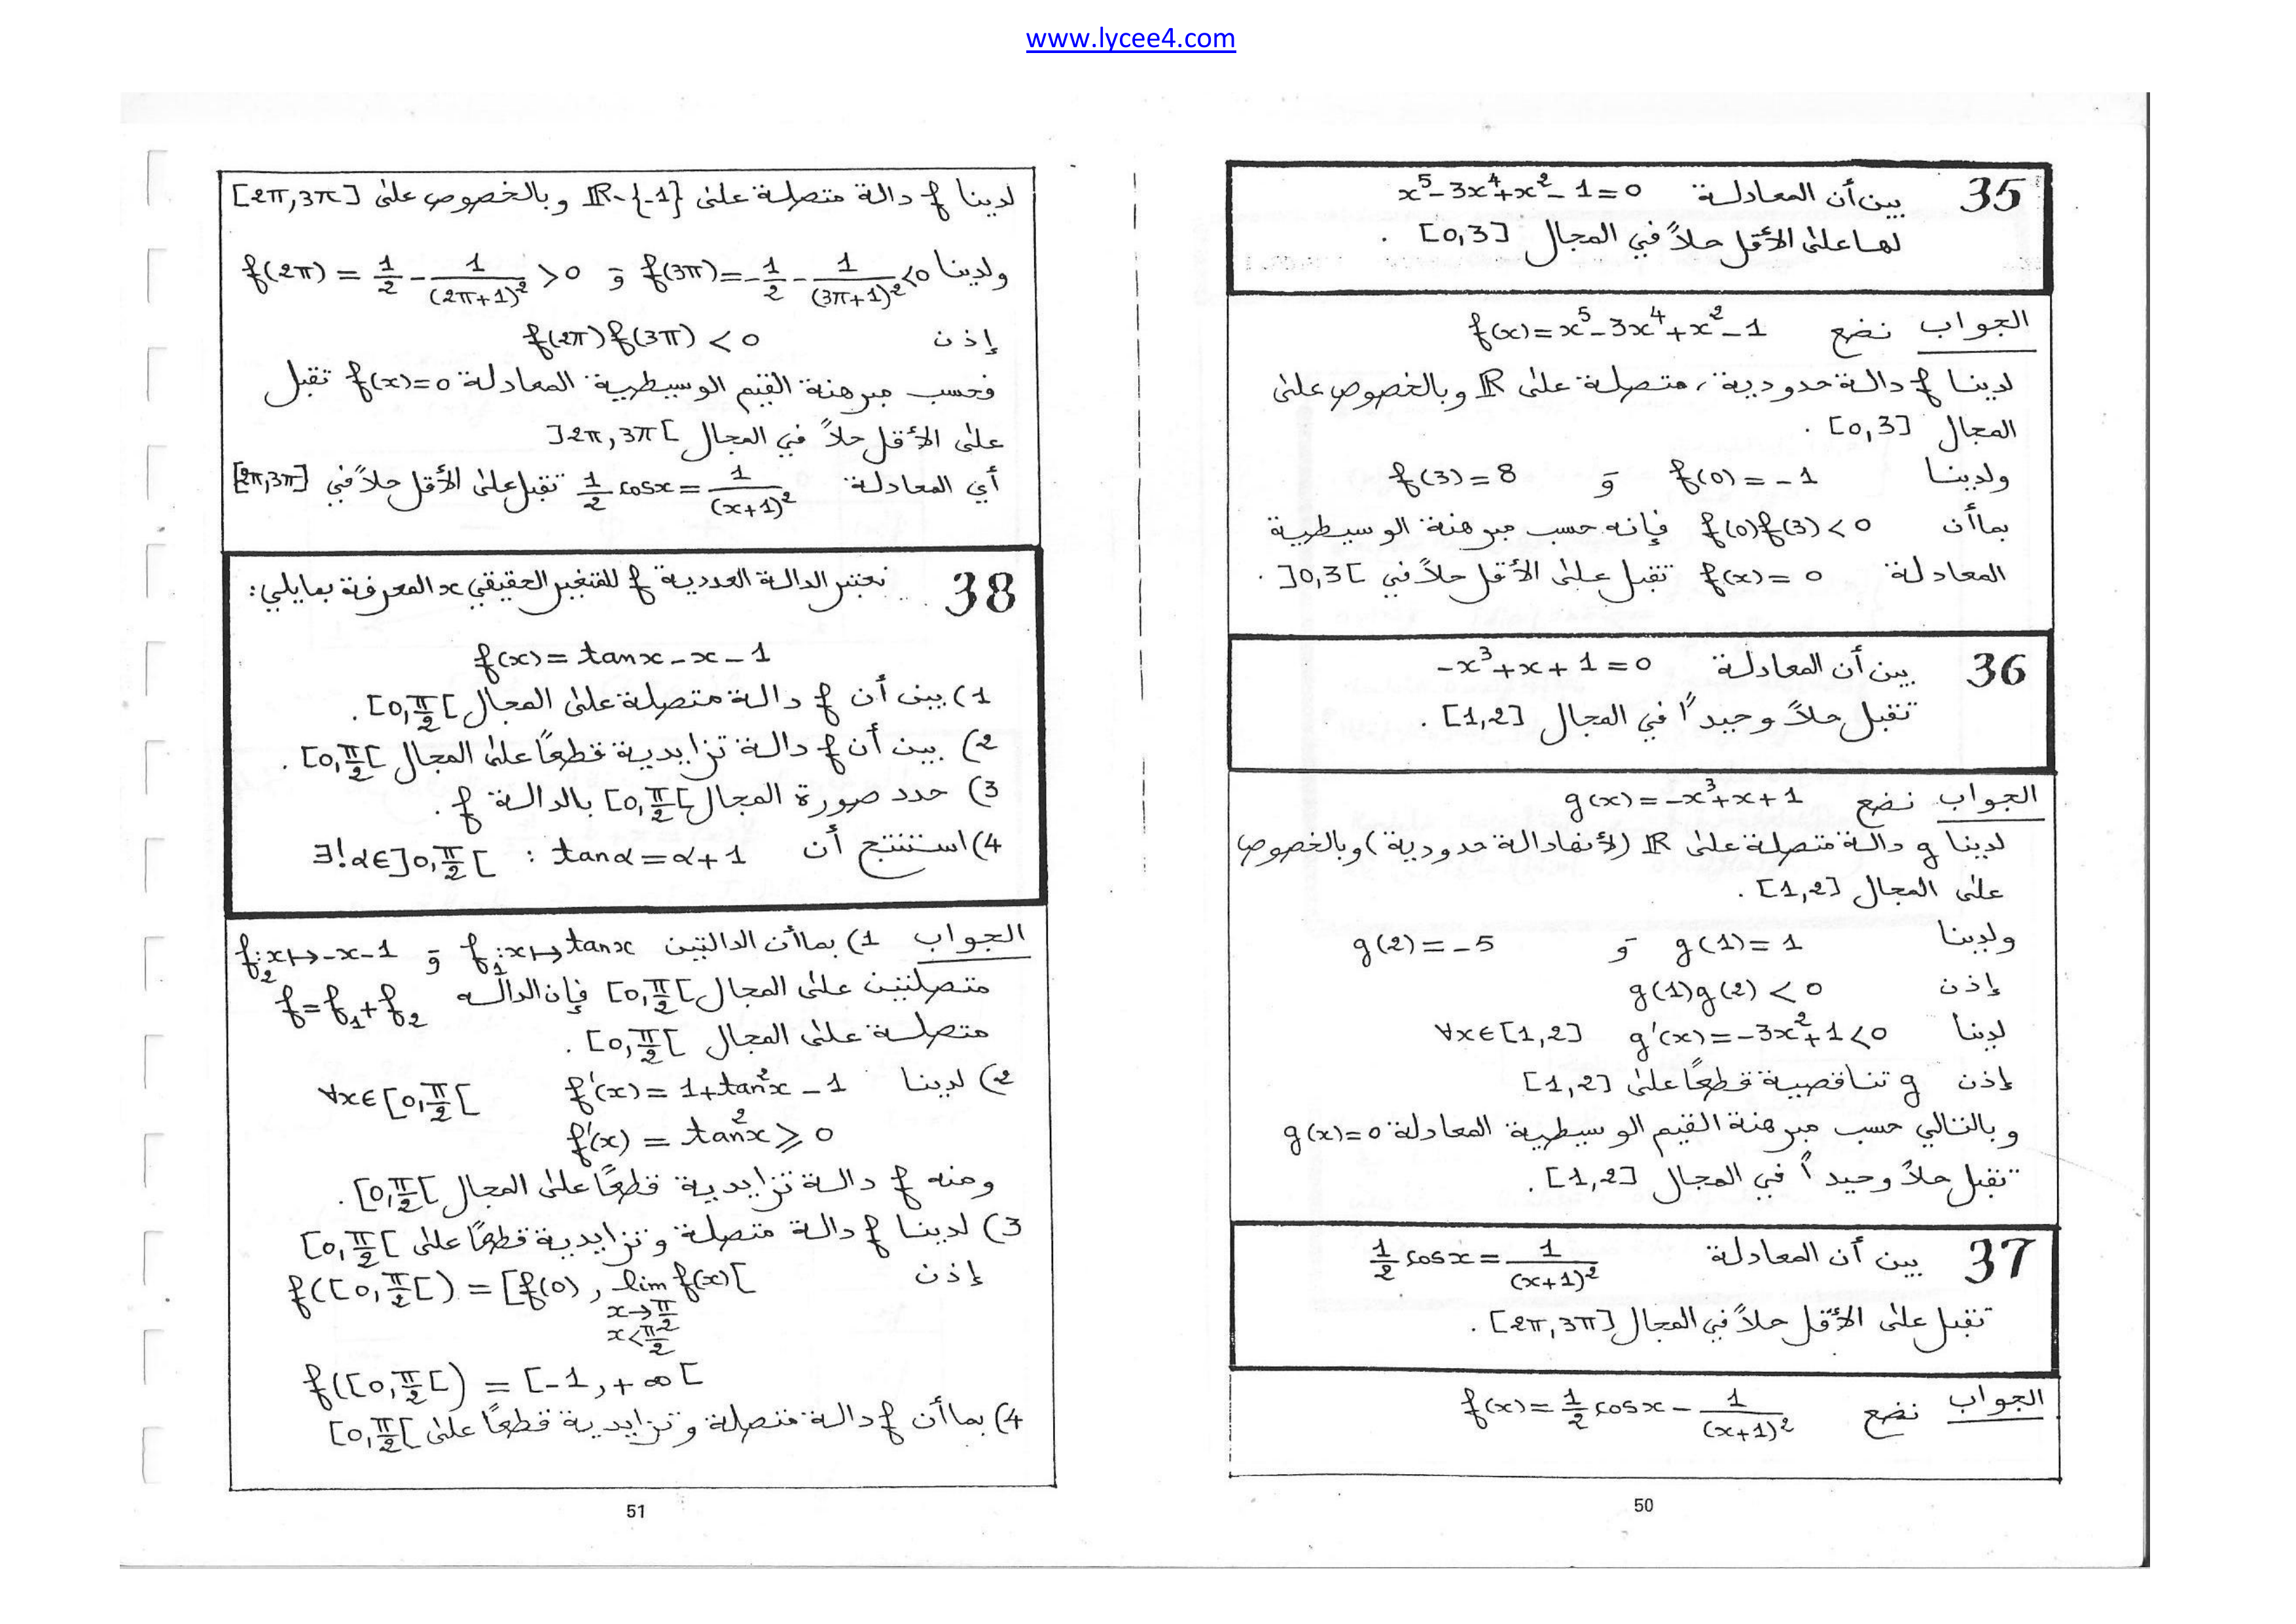 www.lycee4.com
35 بين أن المعادلة x⁵-3x⁴+x²-1=0
لها على الأقل حلاً في المجال [0,3] .
الجواب نضع f(x)=x⁵-3x⁴+x²-1
لدينا f دالة حدودية، متصلة على ℝ وبالخصوص على
المجال [0,3] .
ولدينا f(0)=-1 و f(3)=8
بما أن f(0)f(3)<0 فإنه حسب مبرهنة الوسيطية
المعادلة f(x)=0 تقبل على الأقل حلاً في ]0,3[ .
36 بين أن المعادلة -x³+x+1=0
تقبل حلاً وحيداً في المجال [1,2] .
الجواب نضع g(x)=-x³+x+1
لدينا g دالة متصلة على ℝ (لأنها دالة حدودية) وبالخصوص
على المجال [1,2] .
ولدينا g(1)=1 و g(2)=-5
إذن g(1)g(2)<0
لدينا g'(x)=-3x²+1<0 ∀x∈[1,2]
إذن g تناقصية قطعاً على [1,2]
وبالتالي حسب مبرهنة القيم الوسيطية المعادلة g(x)=0
تقبل حلاً وحيداً في المجال [1,2] .
37 بين أن المعادلة ½cosx=1/(x+1)²
تقبل على الأقل حلاً في المجال [2π,3π] .
الجواب نضع f(x)=½cosx-1/(x+1)²
50
لدينا f دالة متصلة على ℝ-{-1} وبالخصوص على [2π,3π]
ولدينا f(3π)=-½-1/(3π+1)²<0 و f(2π)=½-1/(2π+1)²>0
إذن f(2π)f(3π)<0
فحسب مبرهنة القيم الوسيطية المعادلة f(x)=0 تقبل
على الأقل حلاً في المجال ]2π,3π[
أي المعادلة ½cosx=1/(x+1)² تقبل على الأقل حلاً في [2π,3π]
38 نعتبر الدالة العددية f للمتغير الحقيقي x المعرفة بمايلي:
f(x)=tanx-x-1
1) بين أن f دالة متصلة على المجال [0,π/2[ .
2) بين أن f دالة تزايدية قطعاً على المجال [0,π/2[ .
3) حدد صورة المجال [0,π/2[ بالدالة f .
4) استنتج أن ∃!α∈]0,π/2[ : tanα=α+1
الجواب 1) بما أن الدالتين f₁:x↦tanx و f₂:x↦-x-1
متصلتين على المجال [0,π/2[ فإن الدالة f=f₁+f₂
متصلة على المجال [0,π/2[ .
2) لدينا f'(x)=1+tan²x-1 ∀x∈[0,π/2[
f'(x)=tan²x⩾0
ومنه f دالة تزايدية قطعاً على المجال [0,π/2[ .
3) لدينا f دالة متصلة وتزايدية قطعاً على [0,π/2[
إذن f([0,π/2[)=[f(0), lim f(x)[
x→π/2
x<π/2
f([0,π/2[)=[-1,+∞[
4) بما أن f دالة متصلة وتزايدية قطعاً على [0,π/2[
51